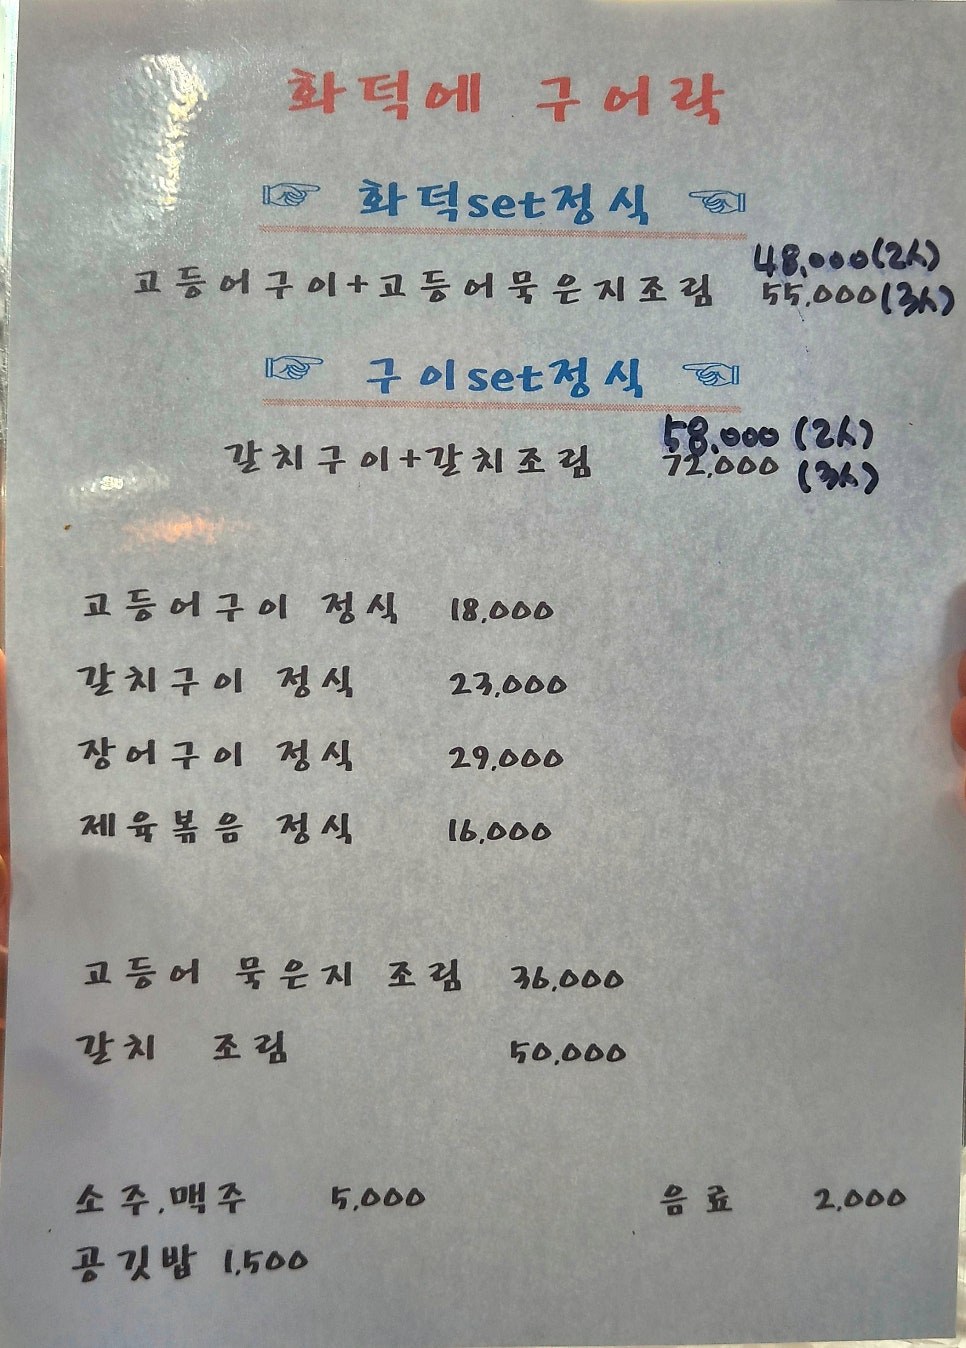 화덕에 구어락
☞ 화덕set정식 ☜
48,000(2人)
고등어구이+고등어묵은지조림 55,000(3人)
☞ 구이set정식 ☜
58,000 (2人)
갈치구이+갈치조림 72,000 (3人)
고등어구이 정식 18,000
갈치구이 정식 23,000
장어구이 정식 29,000
제육볶음 정식 16,000
고등어 묵은지 조림 36,000
갈치 조림 50,000
소주.맥주 5,000 음료 2,000
공깃밥 1,500